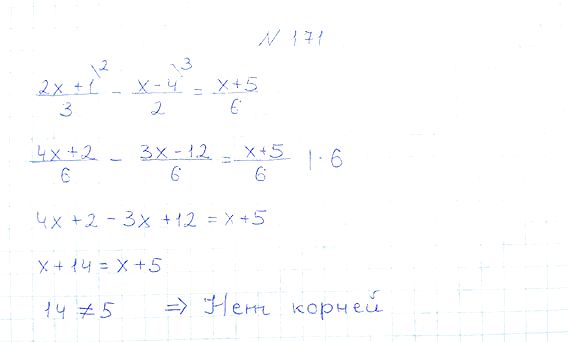 N 171
(2x+1)/3 \2 - (x-4)/2 \3 = (x+5)/6
(4x+2)/6 - (3x-12)/6 = (x+5)/6 | · 6
4x+2-3x+12=x+5
x+14=x+5
14 ≠ 5 ⇒ Нет корней